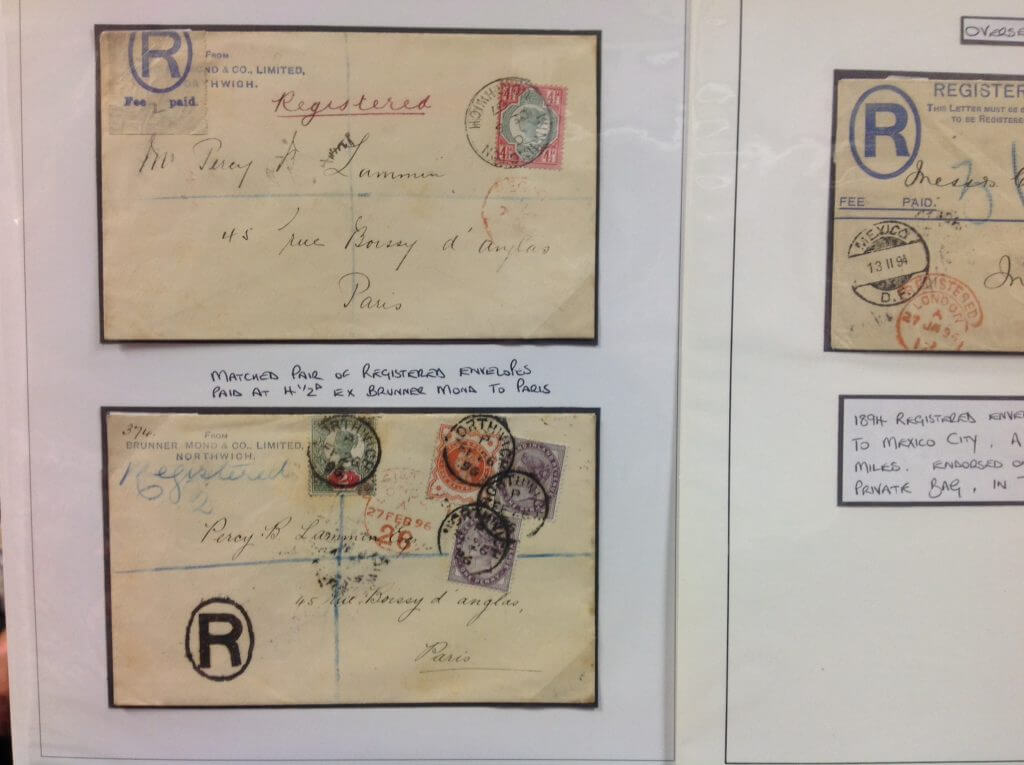 R
Fee 2 paid.
From
MOND & CO., LIMITED,
NORTHWICH.
Registered
NORTHWICH
4½ 4½
4½ 4½
Mr Percy B Lammin
45 rue Boissy d'anglas
Paris
MATCHED PAIR OF REGISTERED ENVELOPES
PAID AT 4½D EX BRUNNER MOND TO PARIS
374.
From
BRUNNER, MOND & CO., LIMITED,
NORTHWICH.
Registered
2
NORTHWICH
96
NORTHWICH
96
NORTHWICH
NORTHWICH
27 FEB 96
28
Percy B. Lammin
45 rue Boissy d'anglas,
Paris
R
OVERSE
REGISTER
THIS LETTER MUST BE
TO BE REGISTERE
R
Messrs
3
FEE PAID.
MEXICO
13 II 94
D.F.
REGISTERED
LONDON
A
27 JA 94
12
1894 REGISTERED ENVE
TO MEXICO CITY. A
MILES. ENDORSED
PRIVATE BAG, IN